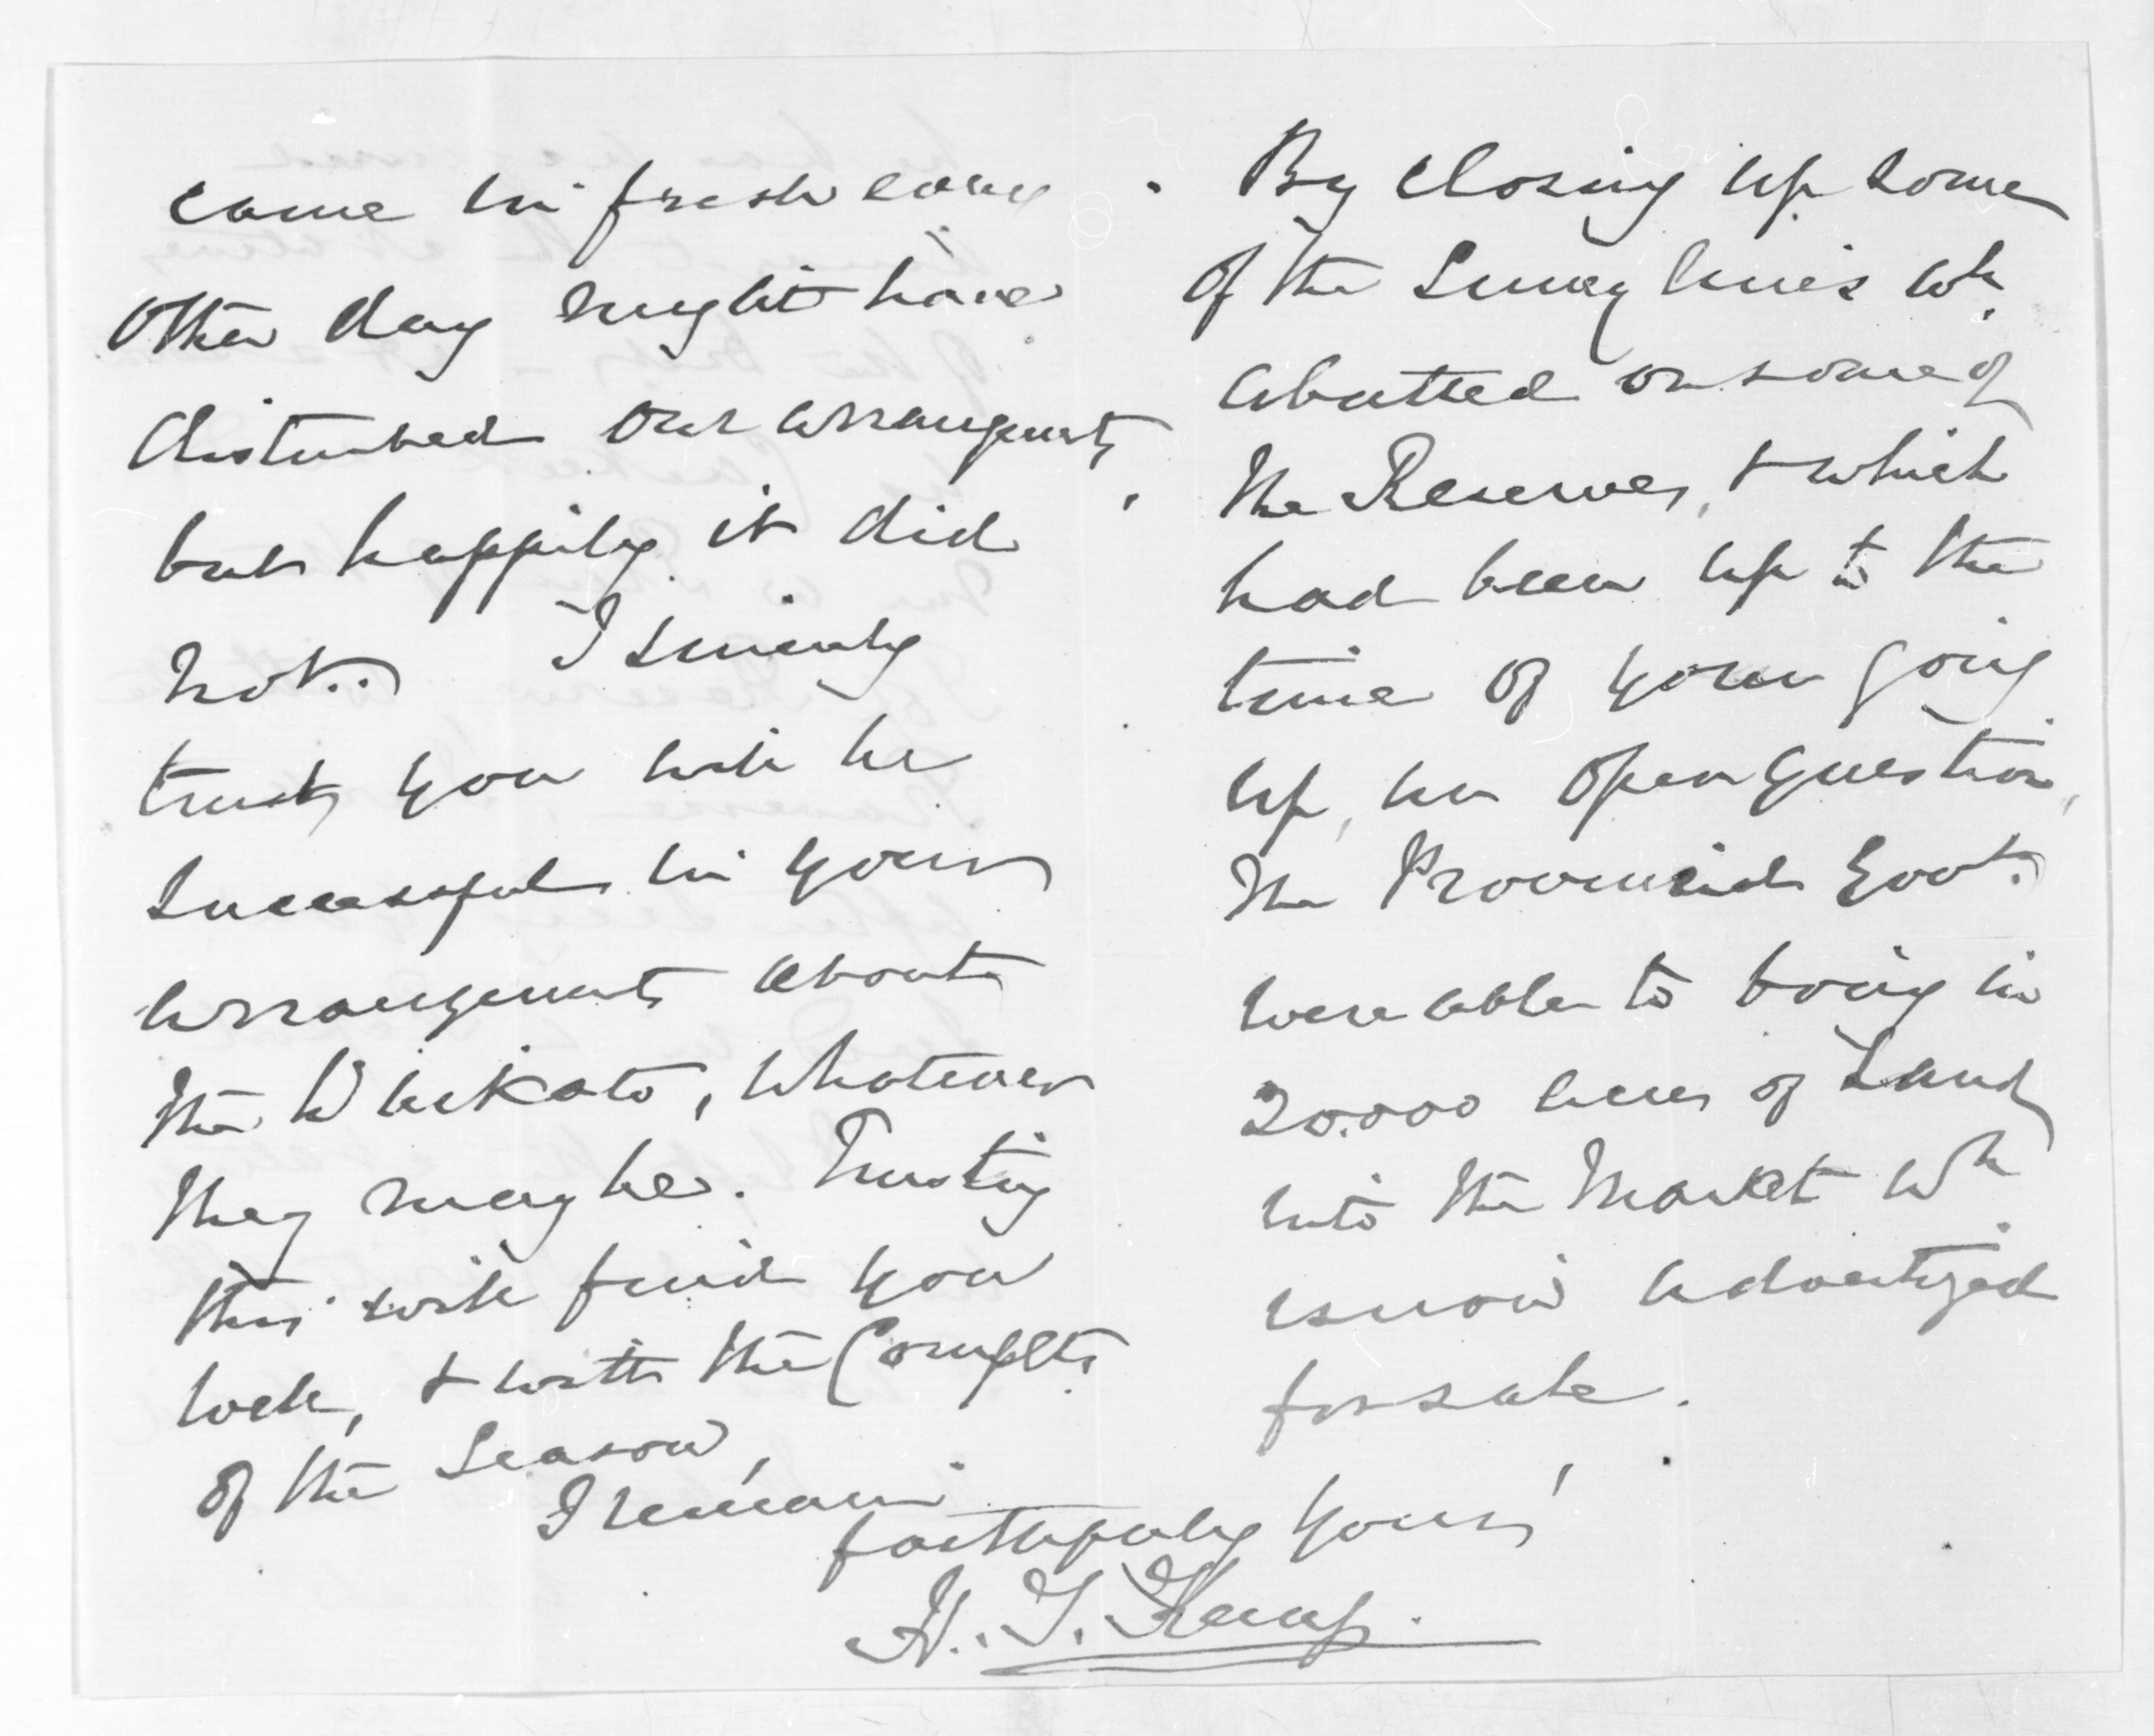 came in fresh
other day might have
disturbed our arrangemts,
but happily it did
not. I sincerely
trust you will be
successful in your
arrangements about
the Waikato, whatever
they may be. Trusting
this will find you
well, & with the Complts
of the Season,
I remain
faithfully yours,
H. T. Kemp.
By closing up some
of the Survey lines wh.
abutted on some of
the Reserves, & which
had been up to the
time of your going
up, an open question,
the Provincial Govt.
were able to bring in
20.000 acres of Land
into the Market wh
is now advertized
for sale.